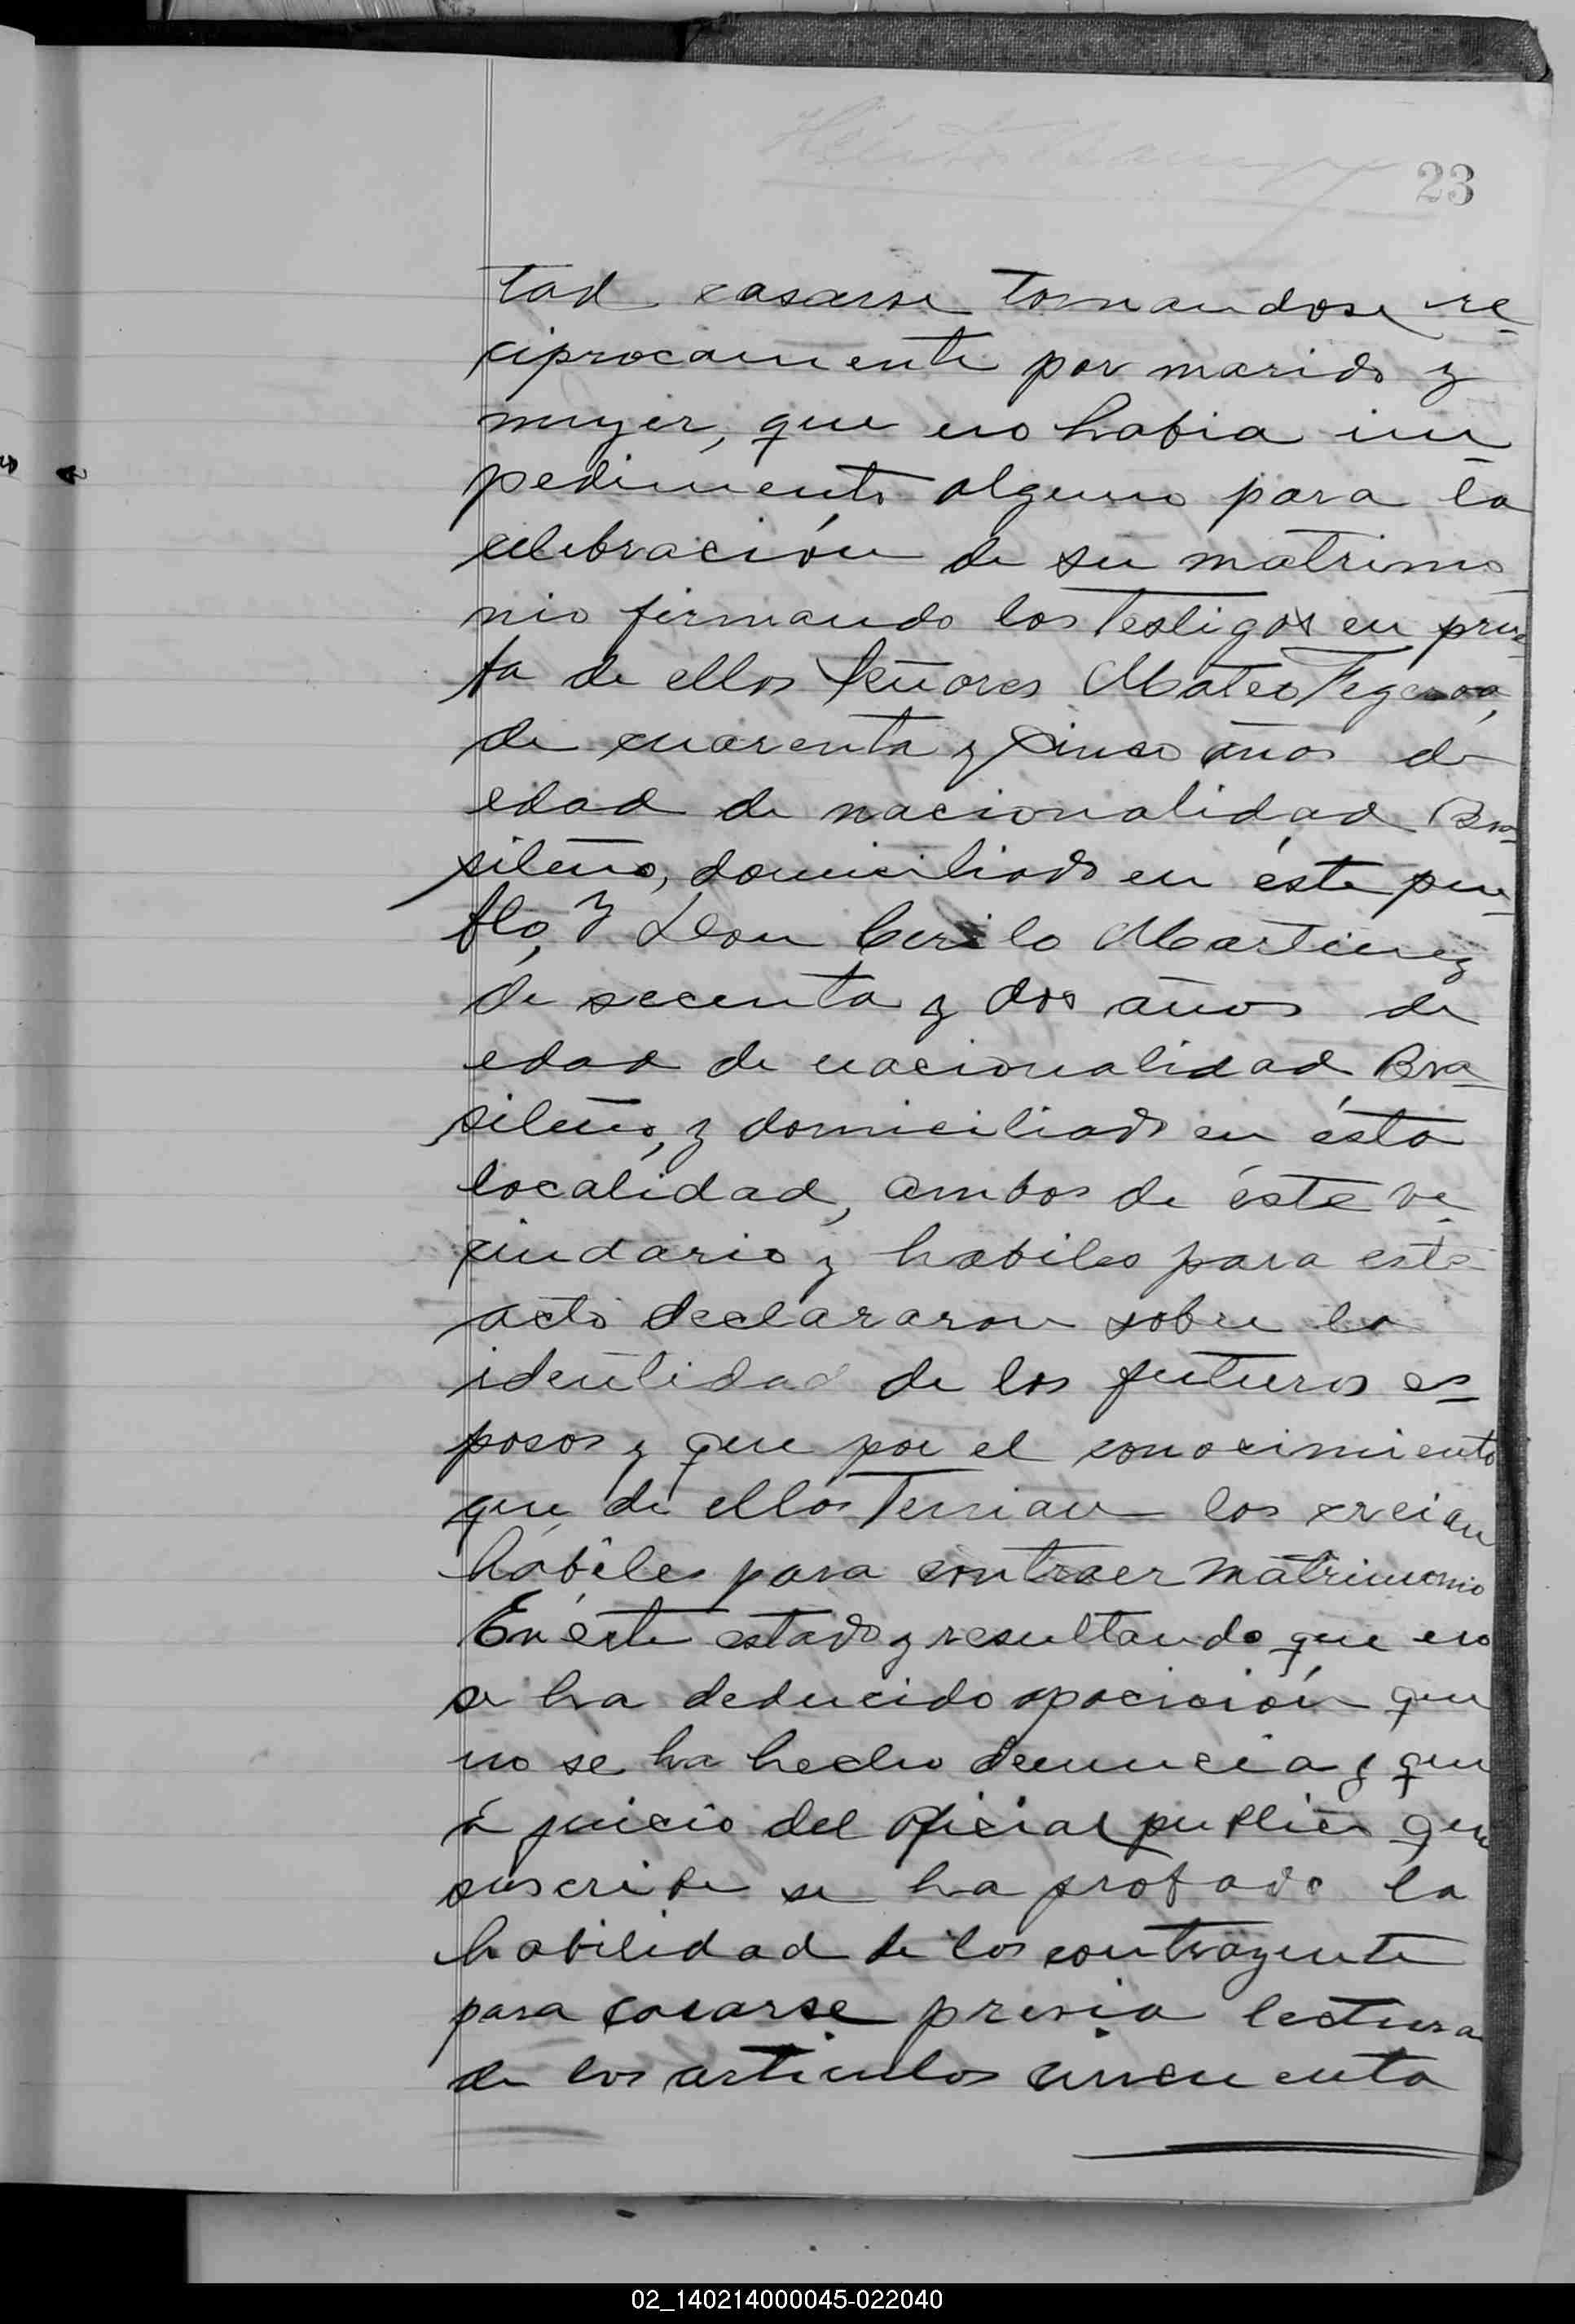 23
tad casarse tomandose re-
ciprocamente por marido y
mujer, que no habia im-
pedimento alguno para la
celebración de su matrimo-
nio firmando los testigos en prue-
ba de ellos Señores Mateo
de cuarenta y cinco años de
edad de nacionalidad Bra-
sileño, domiciliado en éste pue-
blo, y Leon Cirilo Martinez
de secenta y dos años de
edad de nacionalidad Bra-
sileño, y domiciliado en ésta
localidad, ambos de éste ve-
cindario y habiles para este
acto declararon sobre la
identidad de los futuros es-
posos y que por el conocimiento
que de ellos tenian los creian
hábiles para contraer matrimonio
En éste estado y resultando que no
se ha deducido oposición que
no se ha hecho denuncia y que
á juicio del oficial publico que
suscribe se ha probado la
habilidad de los contrayente
para casarse previa lectura
de los articulos cincuenta
02_140214000045-022040